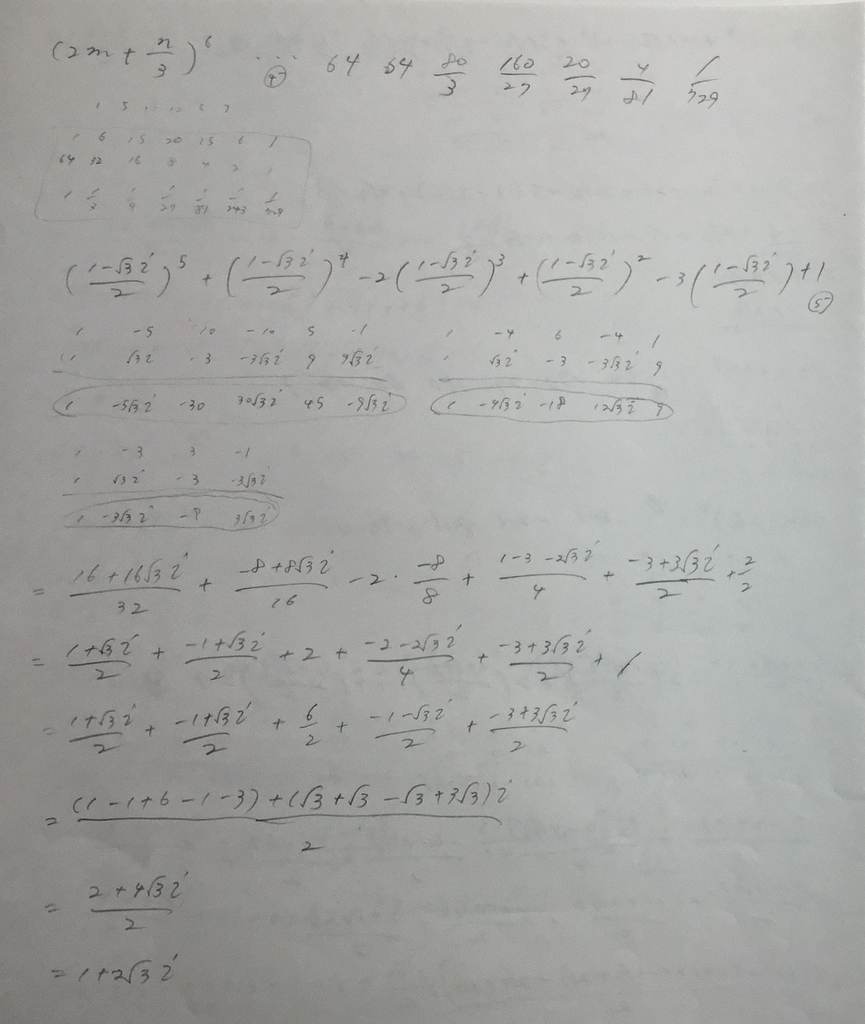 (2m + n/3)^6 ... ㊼ 64 64 80/3 160/27 20/27 4/81 1/729
1 6 15 20 15 6 1
64 32 16 8 4 2 1
1 1/3 1/9 1/27 1/81 1/243 1/729
((1-√3i)/2)^5 + ((1-√3i)/2)^4 - 2((1-√3i)/2)^3 + ((1-√3i)/2)^2 - 3((1-√3i)/2) + 1
1 -5 10 -10 5 -1 1 -4 6 -4 1
1 √3i -3 -3√3i 9 9√3i 1 √3i -3 -3√3i 9
1 -5√3i -30 30√3i 45 -9√3i 1 -4√3i -18 12√3i 9
1 -3 3 -1
1 √3i -3 -3√3i
1 -3√3i -9 3√3i
= (16+16√3i)/32 + (-8+8√3i)/16 - 2·(-8)/8 + (1-3-2√3i)/4 + (-3+3√3i)/2 + 2/2
= (1+√3i)/2 + (-1+√3i)/2 + 2 + (-2-2√3i)/4 + (-3+3√3i)/2 + 1
= (1+√3i)/2 + (-1+√3i)/2 + 6/2 + (-1-√3i)/2 + (-3+3√3i)/2
= ((1-1+6-1-3)+(√3+√3-√3+3√3)i)/2
= (2+4√3i)/2
= 1+2√3i